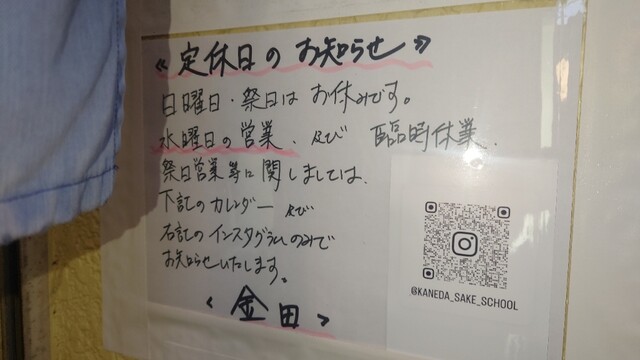 《定休日のお知らせ》
日曜日・祭日はお休みです。
水曜日の営業、及び 臨時休業、
祭日営業等に関しましては、
下記のカレンダー 及び
右記のインスタグラムのみで
お知らせいたします。
<金田>
@KANEDA_SAKE_SCHOOL